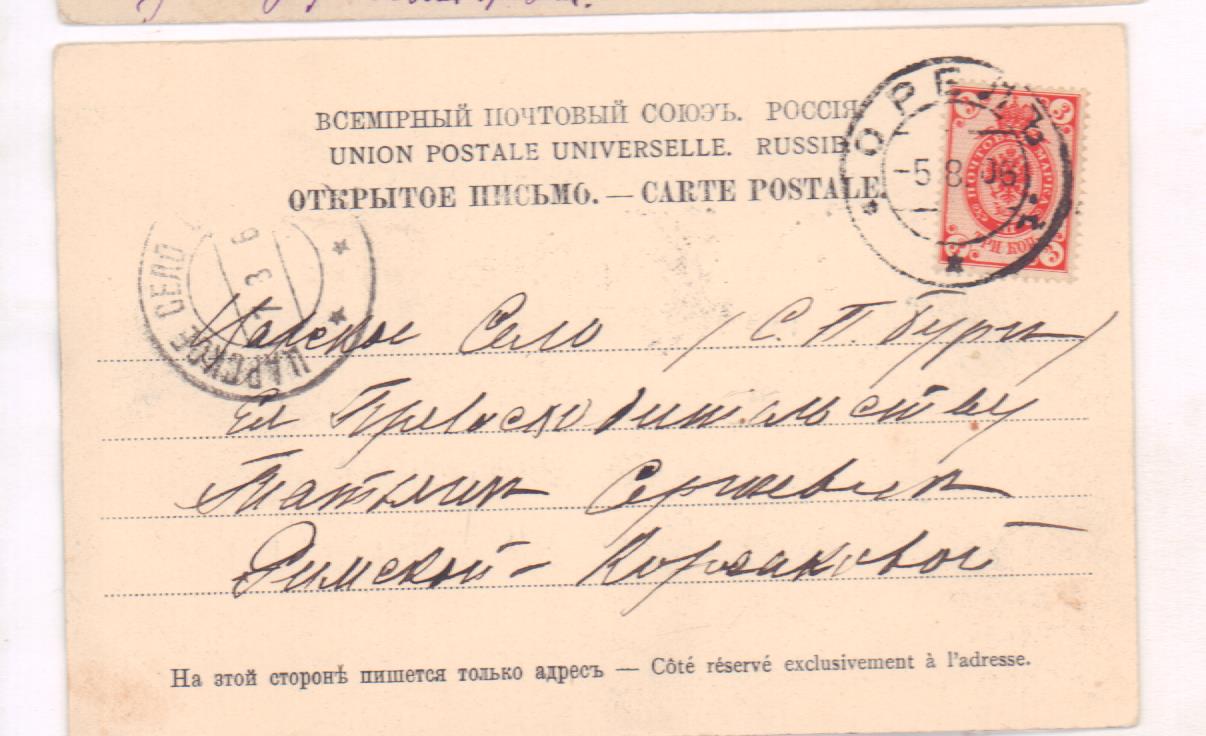 ВСЕМІРНЫЙ ПОЧТОВЫЙ СОЮЗЪ. РОССІЯ
UNION POSTALE UNIVERSELLE. RUSSIE
ОТКРЫТОЕ ПИСЬМО. — CARTE POSTALE.
ОРЕЛЪ
-5 8 06
3 3
ПОЧТОВАЯ МАРКА
ТРИ КОП.
3 3
ЦАРСКОЕ СЕЛО
Царское Село (С. П. Бург)
Ея Превосходительству
Татьянѣ Сергѣевнѣ
Римской-Корсаковой
На этой сторонѣ пишется только адресъ — Côté réservé exclusivement à l'adresse.